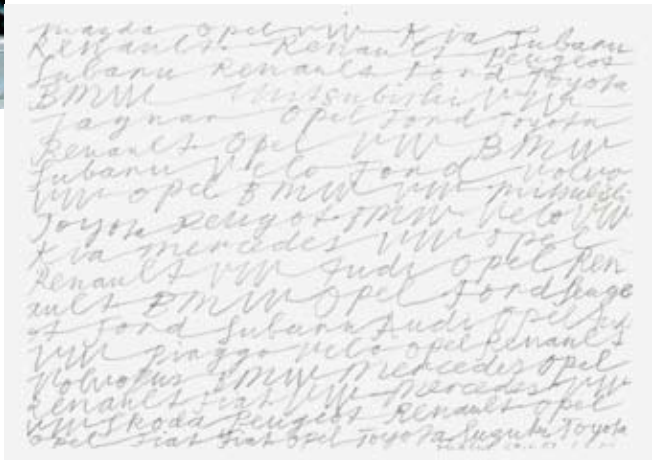 mazda Opel VW Kia Subaru
Renault Renault Peugeos
Subaru Renault Ford Toyota
BMW mitsubishi VW
Jaguar Opel Ford Toyota
Renault Opel VW BMW
Subaru Velo Ford Volvo
VW Opel BMW VW
Toyota Peugeot BMW Velo VW
Kia mercedes VW Opel
Renault VW Audi Opel Ren
ault BMW Opel Ford Peuge
ot Ford Subaru Audi Opel
VW Piaggo Velo Opel Renault
Volvo BMW Mercedes Opel
Renault Fiat VW Mercedes VW
VW Skoda Peugeot Renault Opel
Opel Fiat Fiat Opel Toyota Suzuki Toyota